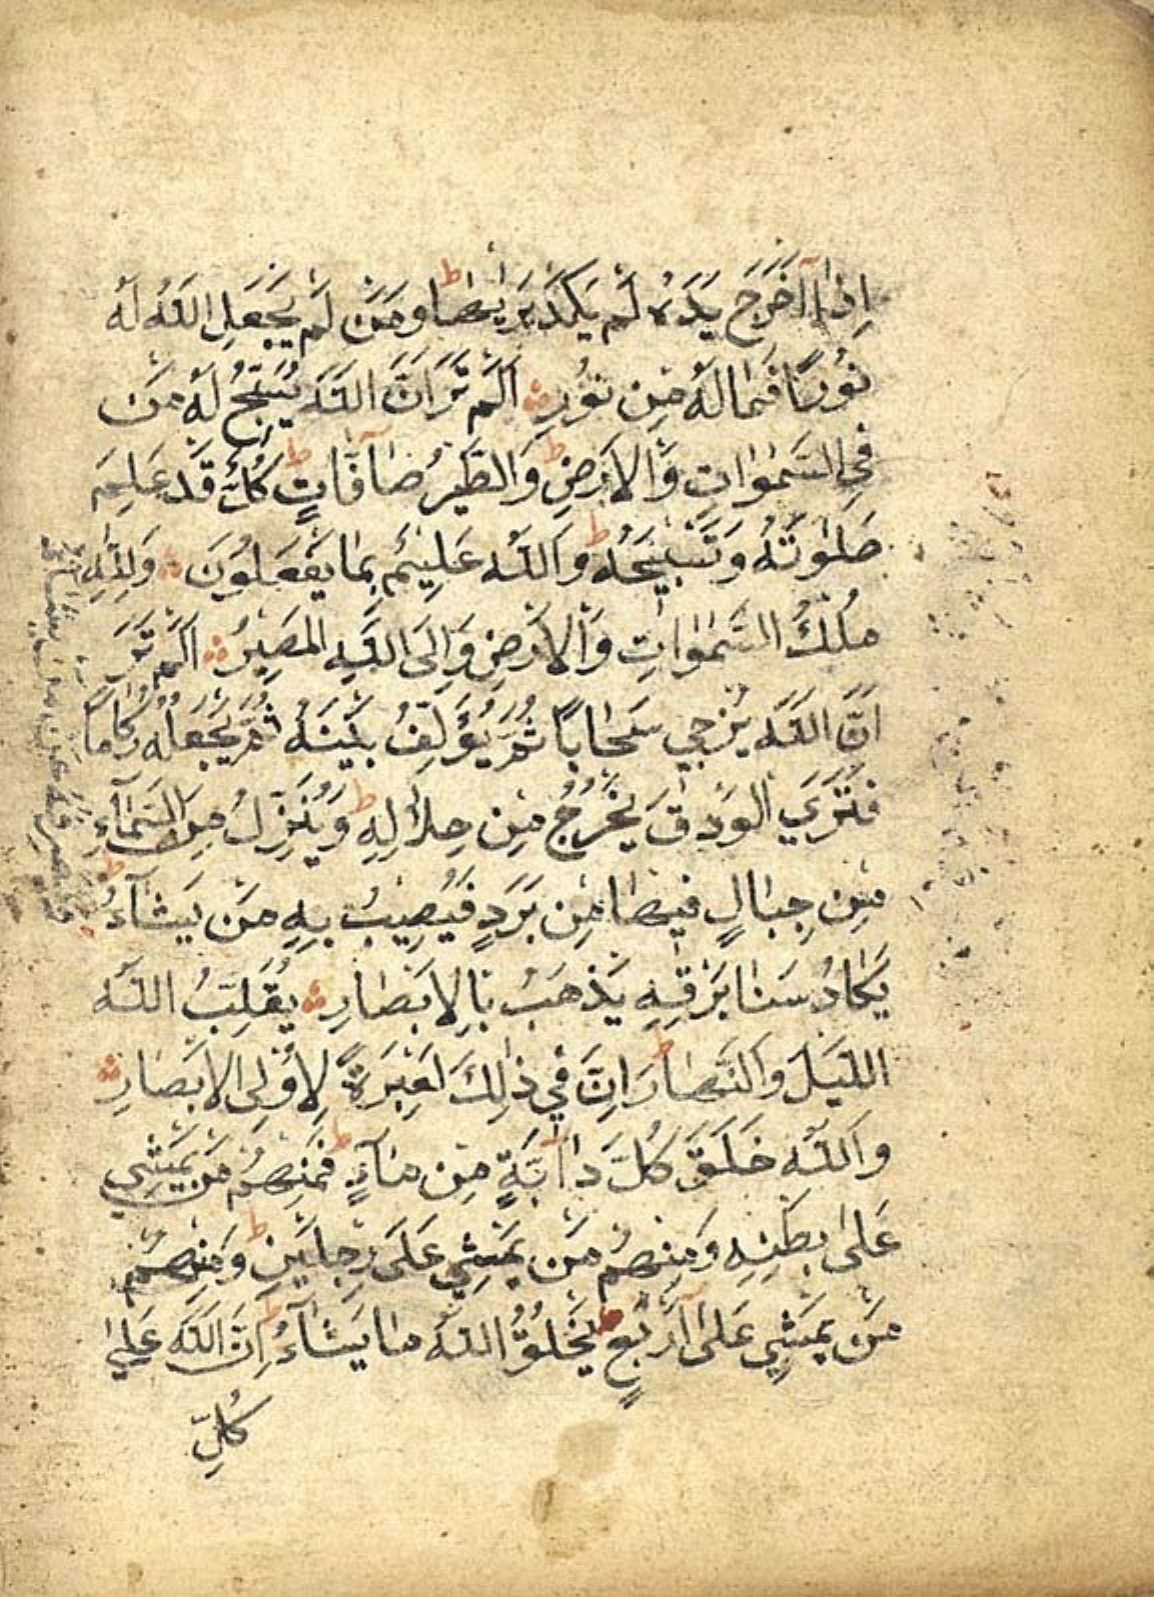 اِذَا اَخْرَجَ يَدَهُ لَمْ يَكَدْ يَرٰيهَا ط وَمَنْ لَمْ يَجْعَلِ اللّٰهُ لَهُ
نُورًا فَمَا لَهُ مِنْ نُورٍ اَلَمْ تَرَ اَنَّ اللّٰهَ يُسَبِّحُ لَهُ مَنْ
فِي السَّمٰوَاتِ وَالْاَرْضِ ط وَالطَّيْرُ صَآفَّاتٍ ط كُلٌّ قَدْ عَلِمَ
صَلٰوتَهُ وَتَسْبِيحَهُ ط وَاللّٰهُ عَلِيمٌ بِمَا يَفْعَلُونَ وَلِلّٰهِ
مُلْكُ السَّمٰوَاتِ وَالْاَرْضِ وَاِلَى اللّٰهِ الْمَصِيرُ اَلَمْ تَرَ
اَنَّ اللّٰهَ يُزْجِي سَحَابًا ثُمَّ يُؤَلِّفُ بَيْنَهُ ثُمَّ يَجْعَلُهُ رُكَامًا
فَتَرَي الْوَدْقَ يَخْرُجُ مِنْ خِلَالِهِ ط وَيُنَزِّلُ مِنَ السَّمَآءِ
مِنْ جِبَالٍ فِيهَا مِنْ بَرَدٍ فَيُصِيبُ بِهِ مَنْ يَشَآءُ ط
يَكَادُ سَنَا بَرْقِهِ يَذْهَبُ بِالْاَبْصَارِ يُقَلِّبُ اللّٰهُ
اللَّيْلَ وَالنَّهَارَ ط اِنَّ فِي ذٰلِكَ لَعِبْرَةً لِاُولِى الْاَبْصَارِ
وَاللّٰهُ خَلَقَ كُلَّ دَآبَّةٍ مِنْ مَآءٍ ط فَمِنْهُمْ مَنْ يَمْشِي
عَلٰى بَطْنِهِ وَمِنْهُمْ مَنْ يَمْشِي عَلٰى رِجْلَيْنِ ط وَمِنْهُمْ
مَنْ يَمْشِي عَلٰى اَرْبَعٍ ط يَخْلُقُ اللّٰهُ مَا يَشَآءُ ط اِنَّ اللّٰهَ عَلٰى
كُلِّ